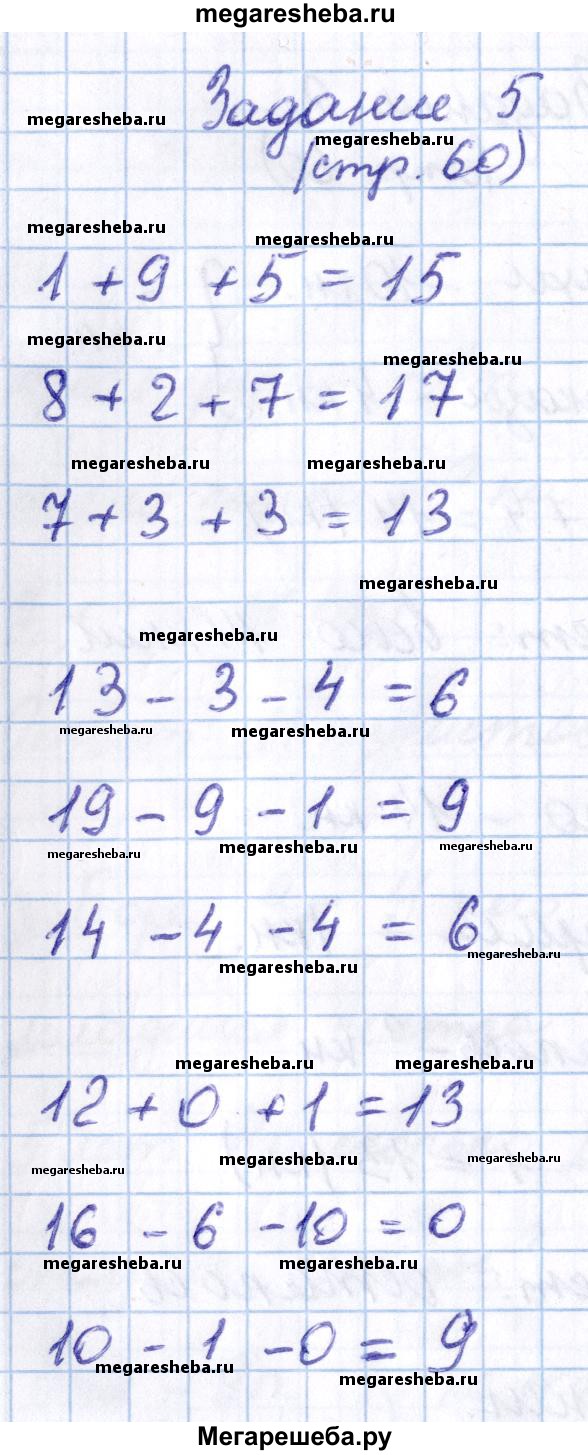 megaresheba.ru
Задание 5
megaresheba.ru
megaresheba.ru
(стр. 60)
megaresheba.ru
megaresheba.ru
1 + 9 + 5 = 15
megaresheba.ru
megaresheba.ru
8 + 2 + 7 = 17
megaresheba.ru megaresheba.ru
7 + 3 + 3 = 13
megaresheba.ru
megaresheba.ru
13 - 3 - 4 = 6
megaresheba.ru megaresheba.ru
19 - 9 - 1 = 9
megaresheba.ru megaresheba.ru megaresheba.ru
14 - 4 - 4 = 6
megaresheba.ru
megaresheba.ru
megaresheba.ru megaresheba.ru
12 + 0 + 1 = 13
megaresheba.ru megaresheba.ru megaresheba.ru
16 - 6 - 10 = 0
megaresheba.ru megaresheba.ru
10 - 1 - 0 = 9
megaresheba.ru megaresheba.ru
Мегарешеба.ру